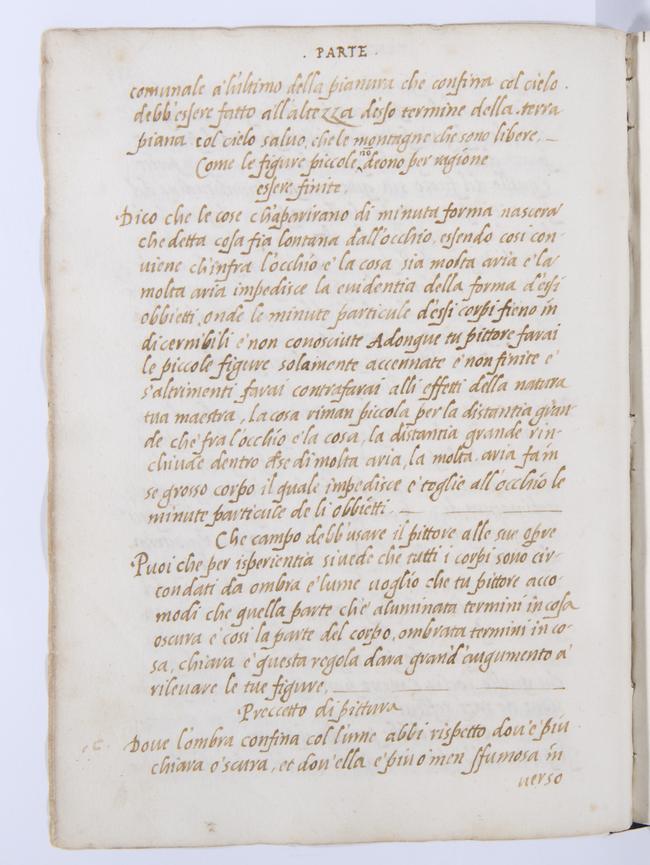 . PARTE .
comunale a l'ultimo della pianura che confina col cielo .
debb'essere fatto all'altezza d'esso termine della terra
piana col cielo saluo, che le montagne che sono libere. —
Come le figure piccole no deono per ragione
essere finite.
Dico che le cose ch'aparirano di minuta forma nascera
che detta cosa fia lontana dall'occhio, essendo cosi con-
uiene ch'infra l'occhio e la cosa sia molta aria e la
molta aria impedisce la euidentia della forma d'essi
obbietti, onde le minute particule d'essi corpi fieno in
dicernibili e non conosciute Adonque tu pittore farai
le piccole figure solamente accennate e non finite e
s'altrimenti farai contrafarai alli effetti della natura
tua maestra, la cosa riman piccola per la distantia gran-
de che fra l'occhio e la cosa, la distantia grande rin-
chiude dentro di se di molta aria, la molta aria fa in
se grosso corpo il quale impedisce e toglie all'occhio le
minute particule de li obbietti. —
Che campo debb'usare il pittore alle sue opre
Puoi che per isperientia si uede che tutti i corpi sono cir-
condati da ombra e lume uoglio che tu pittore acco-
modi che quella parte che aluminata termini in cosa
oscura e cosi la parte del corpo, ombrata termini in co-
sa, chiara e questa regola dara grand'augumento a
rileuare le tue figure. —
Preccetto di pittura
Doue l'ombra confina col lume abbi rispetto dou'e piu
chiara o scura, et dou'ella e piu o men sfumosa in
uerso